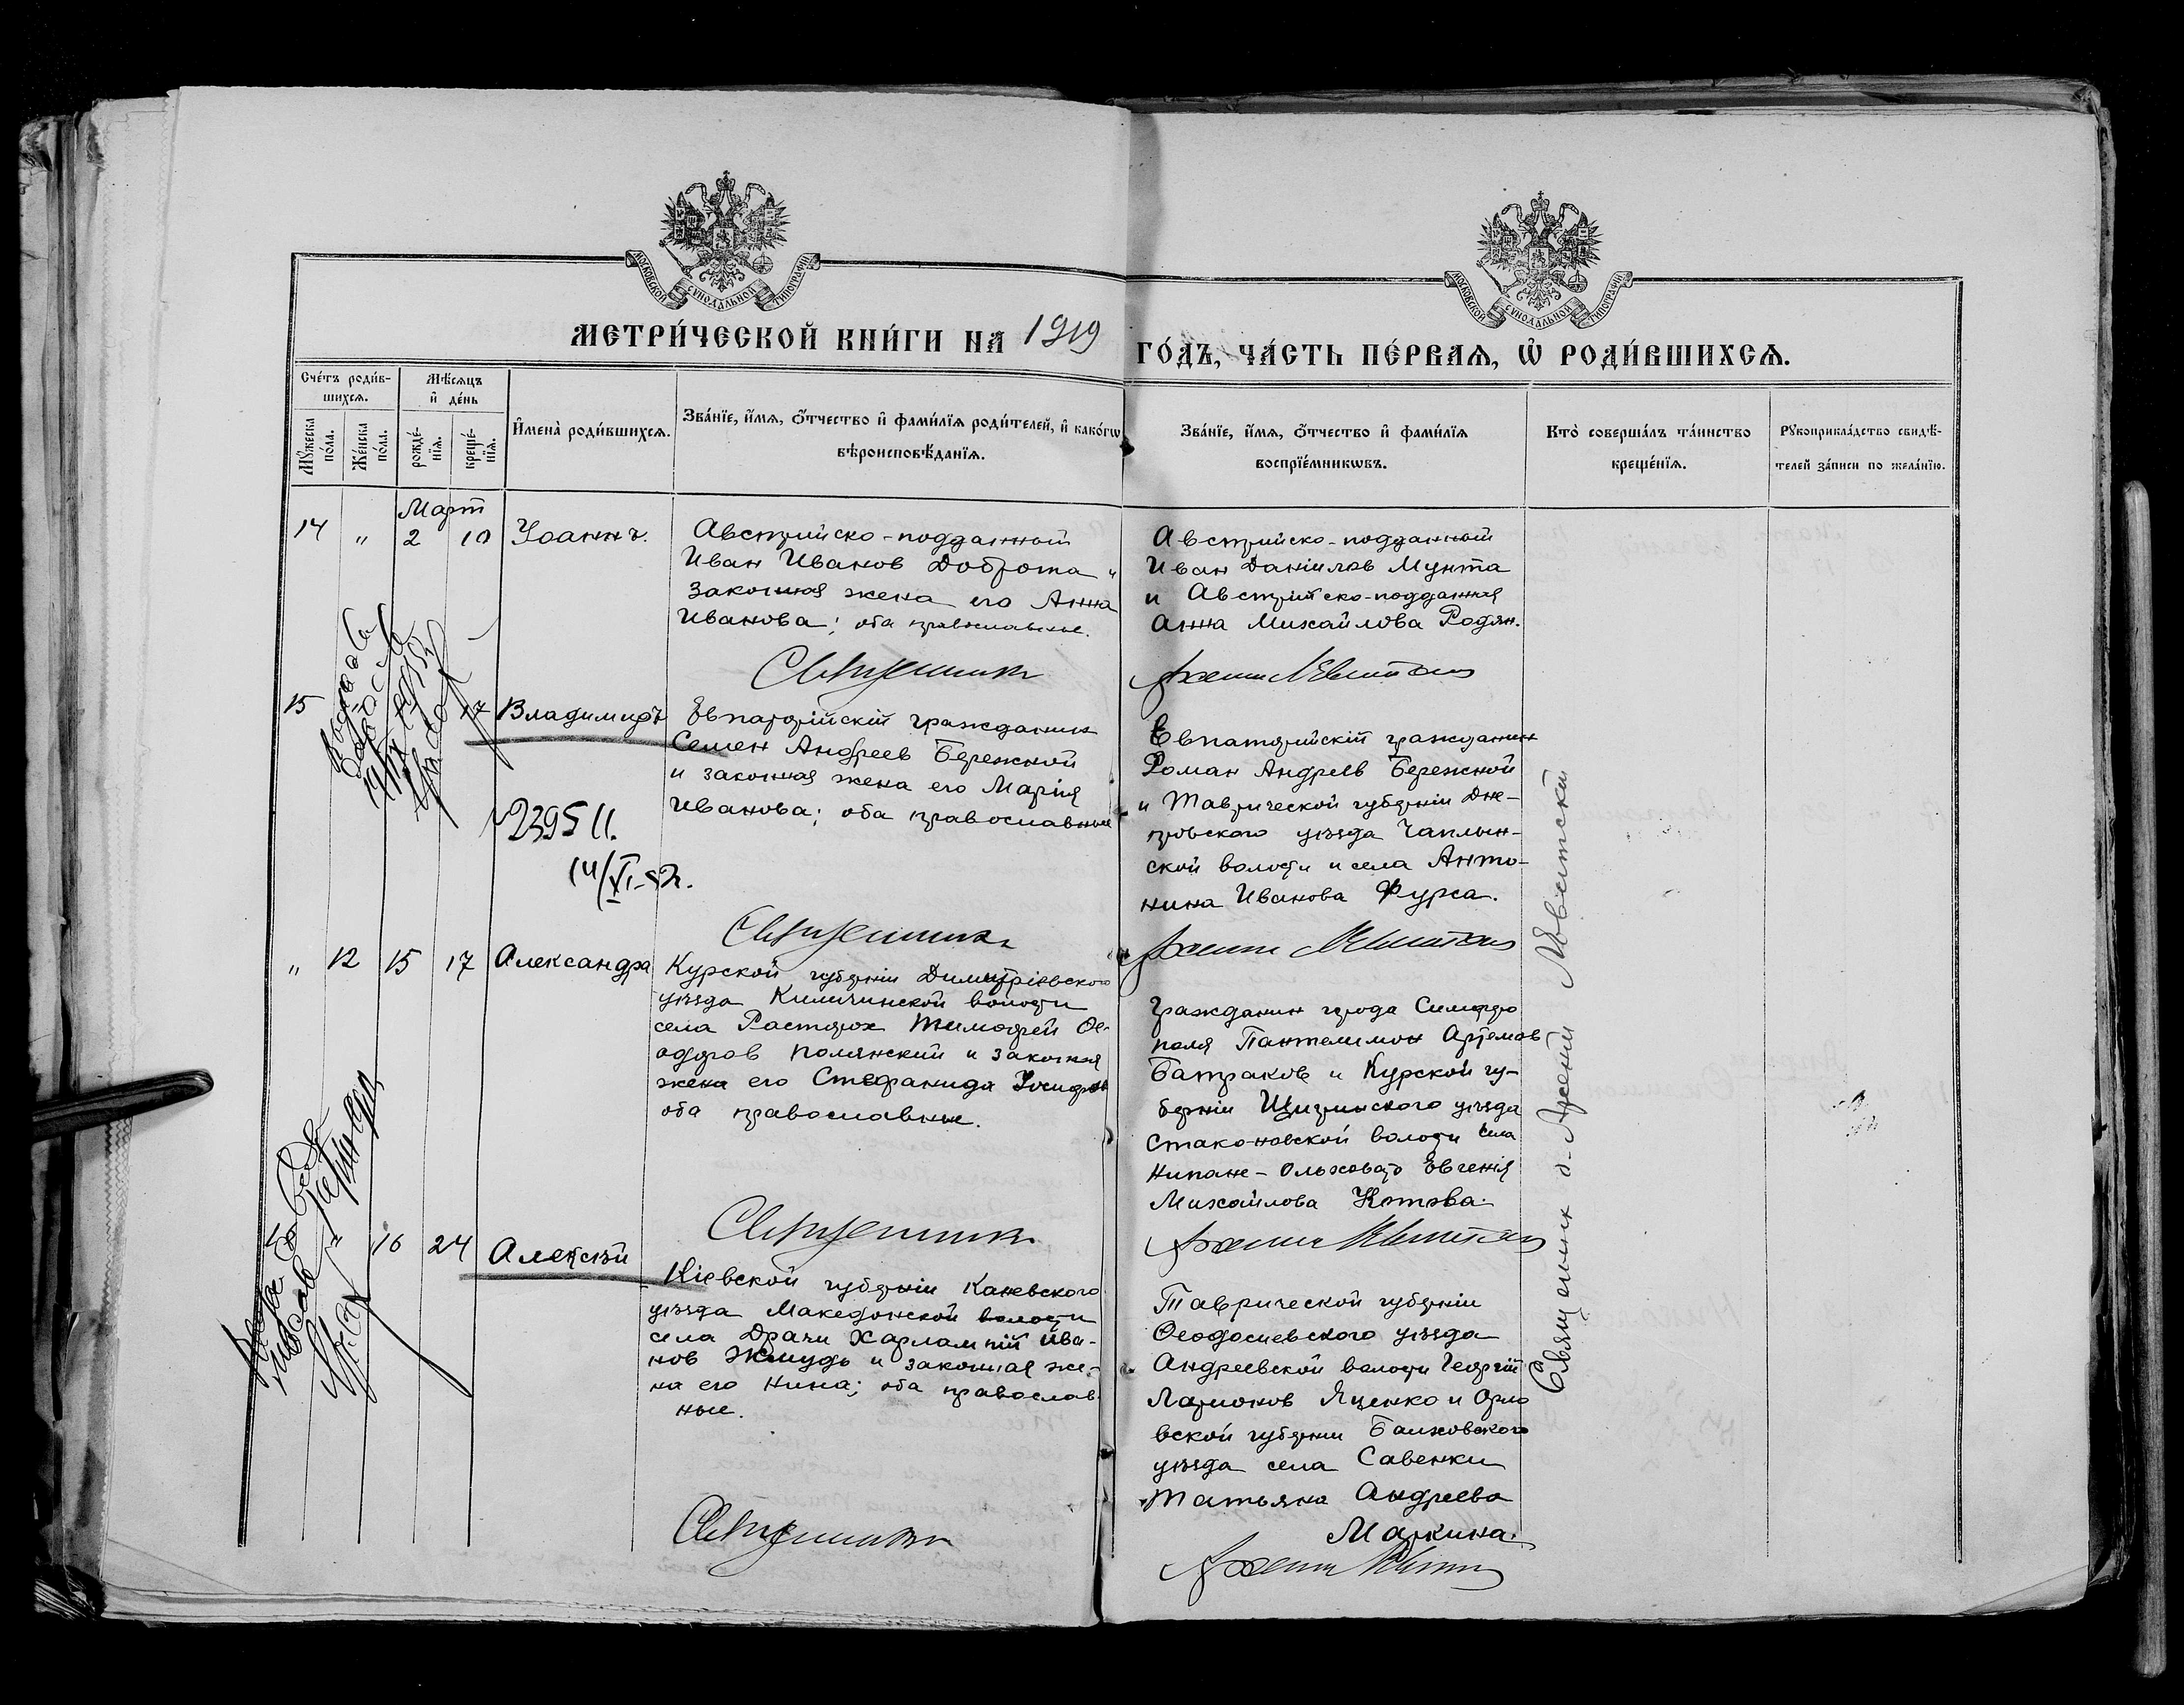 МОСКОВСКОЙ СѴНОДАЛЬНОЙ ТИПОГРАФІИ
МОСКОВСКОЙ СѴНОДАЛЬНОЙ ТИПОГРАФІИ
МЕТРИ́ЧЕСКОЙ КНИ́ГИ НА 1919 ГО́ДЪ, ЧА́СТЬ ПЕ́РВАЯ, Ѡ҆ РОДИ́ВШИХСЯ.
Сче́тъ роди́в-
шихся.
Мѣ́сяцъ
и҆ де́нь
Мꙋ́жеска
по́ла.
Же́нска
по́ла.
рожде́-
нїя.
креще́-
нїя.
И҆мена̀ роди́вшихся.
Зва́нїе, и҆́мя, ѻ҆́тчество и҆ фами́лїя роди́телей, и҆ како́гѡ
вѣроисповѣ́данїя.
Зва́нїе, и҆́мя, ѻ҆́тчество и҆ фами́лїя
воспрїе́мникѡвъ.
Кто̀ соверша́лъ та́инство
креще́нїя.
Рꙋкоприкла́дство свидѣ́-
телей за́писи по жела́нїю.
Март
14 " 2 10 Іоаннъ.
Австрийско-подданный
Иван Иванов Доброта и
законная жена его Анна
Иванова; оба православные.
Австрийско-подданный
Иван Даніилов Мунта
и Австрийско-подданная
Анна Михайлова Родян.
Священник
15 17 Владимиръ
Евпаторійскій гражданин
Семен Андреев Бережной
и законная жена его Марія
Иванова; оба православные
Евпаторийскій гражданин
Роман Андреев Бережной
и Таврической губерніи Дне-
провского уѣзда Чаплын-
ской волости и села Анто-
нина Иванова Фурса.
Священник
" 12 15 17 Александра
Курской губерніи Димитріевского
уѣзда
села Тимофей Ѳе-
одоров Полянский и законная
жена его Стефанида
оба православные.
Гражданин города Симферо
поля Пантелимон Артемов
Батраков и Курской гу-
берніи Щигринского уѣзда
Стакановской волости села
Евгенія
Михайлова Котова.
Священник
16 24 Алексѣй
Кіевской губерніи Каневского
уѣзда Македонской волости
села Драчи Харлампій Ива-
нов Жмудь и законная же-
на его Нина; оба православ-
ные.
Таврической губерніи
Ѳеодосиевского уѣзда
Андреевской волости Георгій
Ларионов Яценко и Орло
вской губернии
уѣзда села Савенки
Татьяна Андреева
Маркина.
Священник
Священник о. Арсений